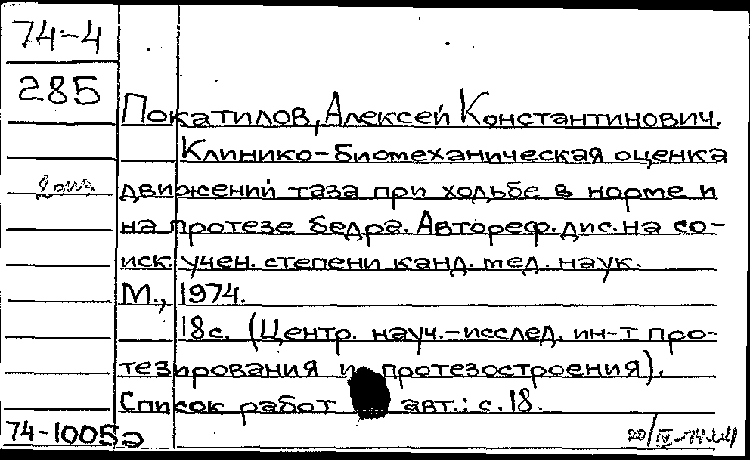 74-4
285
Покатилов, Алексей Константинович.
Клинико-биомеханическая оценка
движений таза при ходьбе в норме и
на протезе бедра. Автореф. дис. на со-
иск. учен. степени канд. мед. наук.
М., 1974.
18с. (Центр. науч.-исслед. ин-т про-
тезирования и протезостроения).
Список работ авт.: с.18.
74-1005э